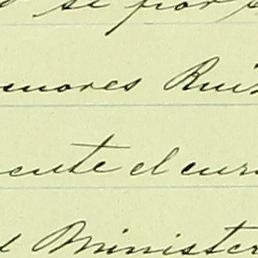 se por
enores Ruiz
cente el cur
l Minister